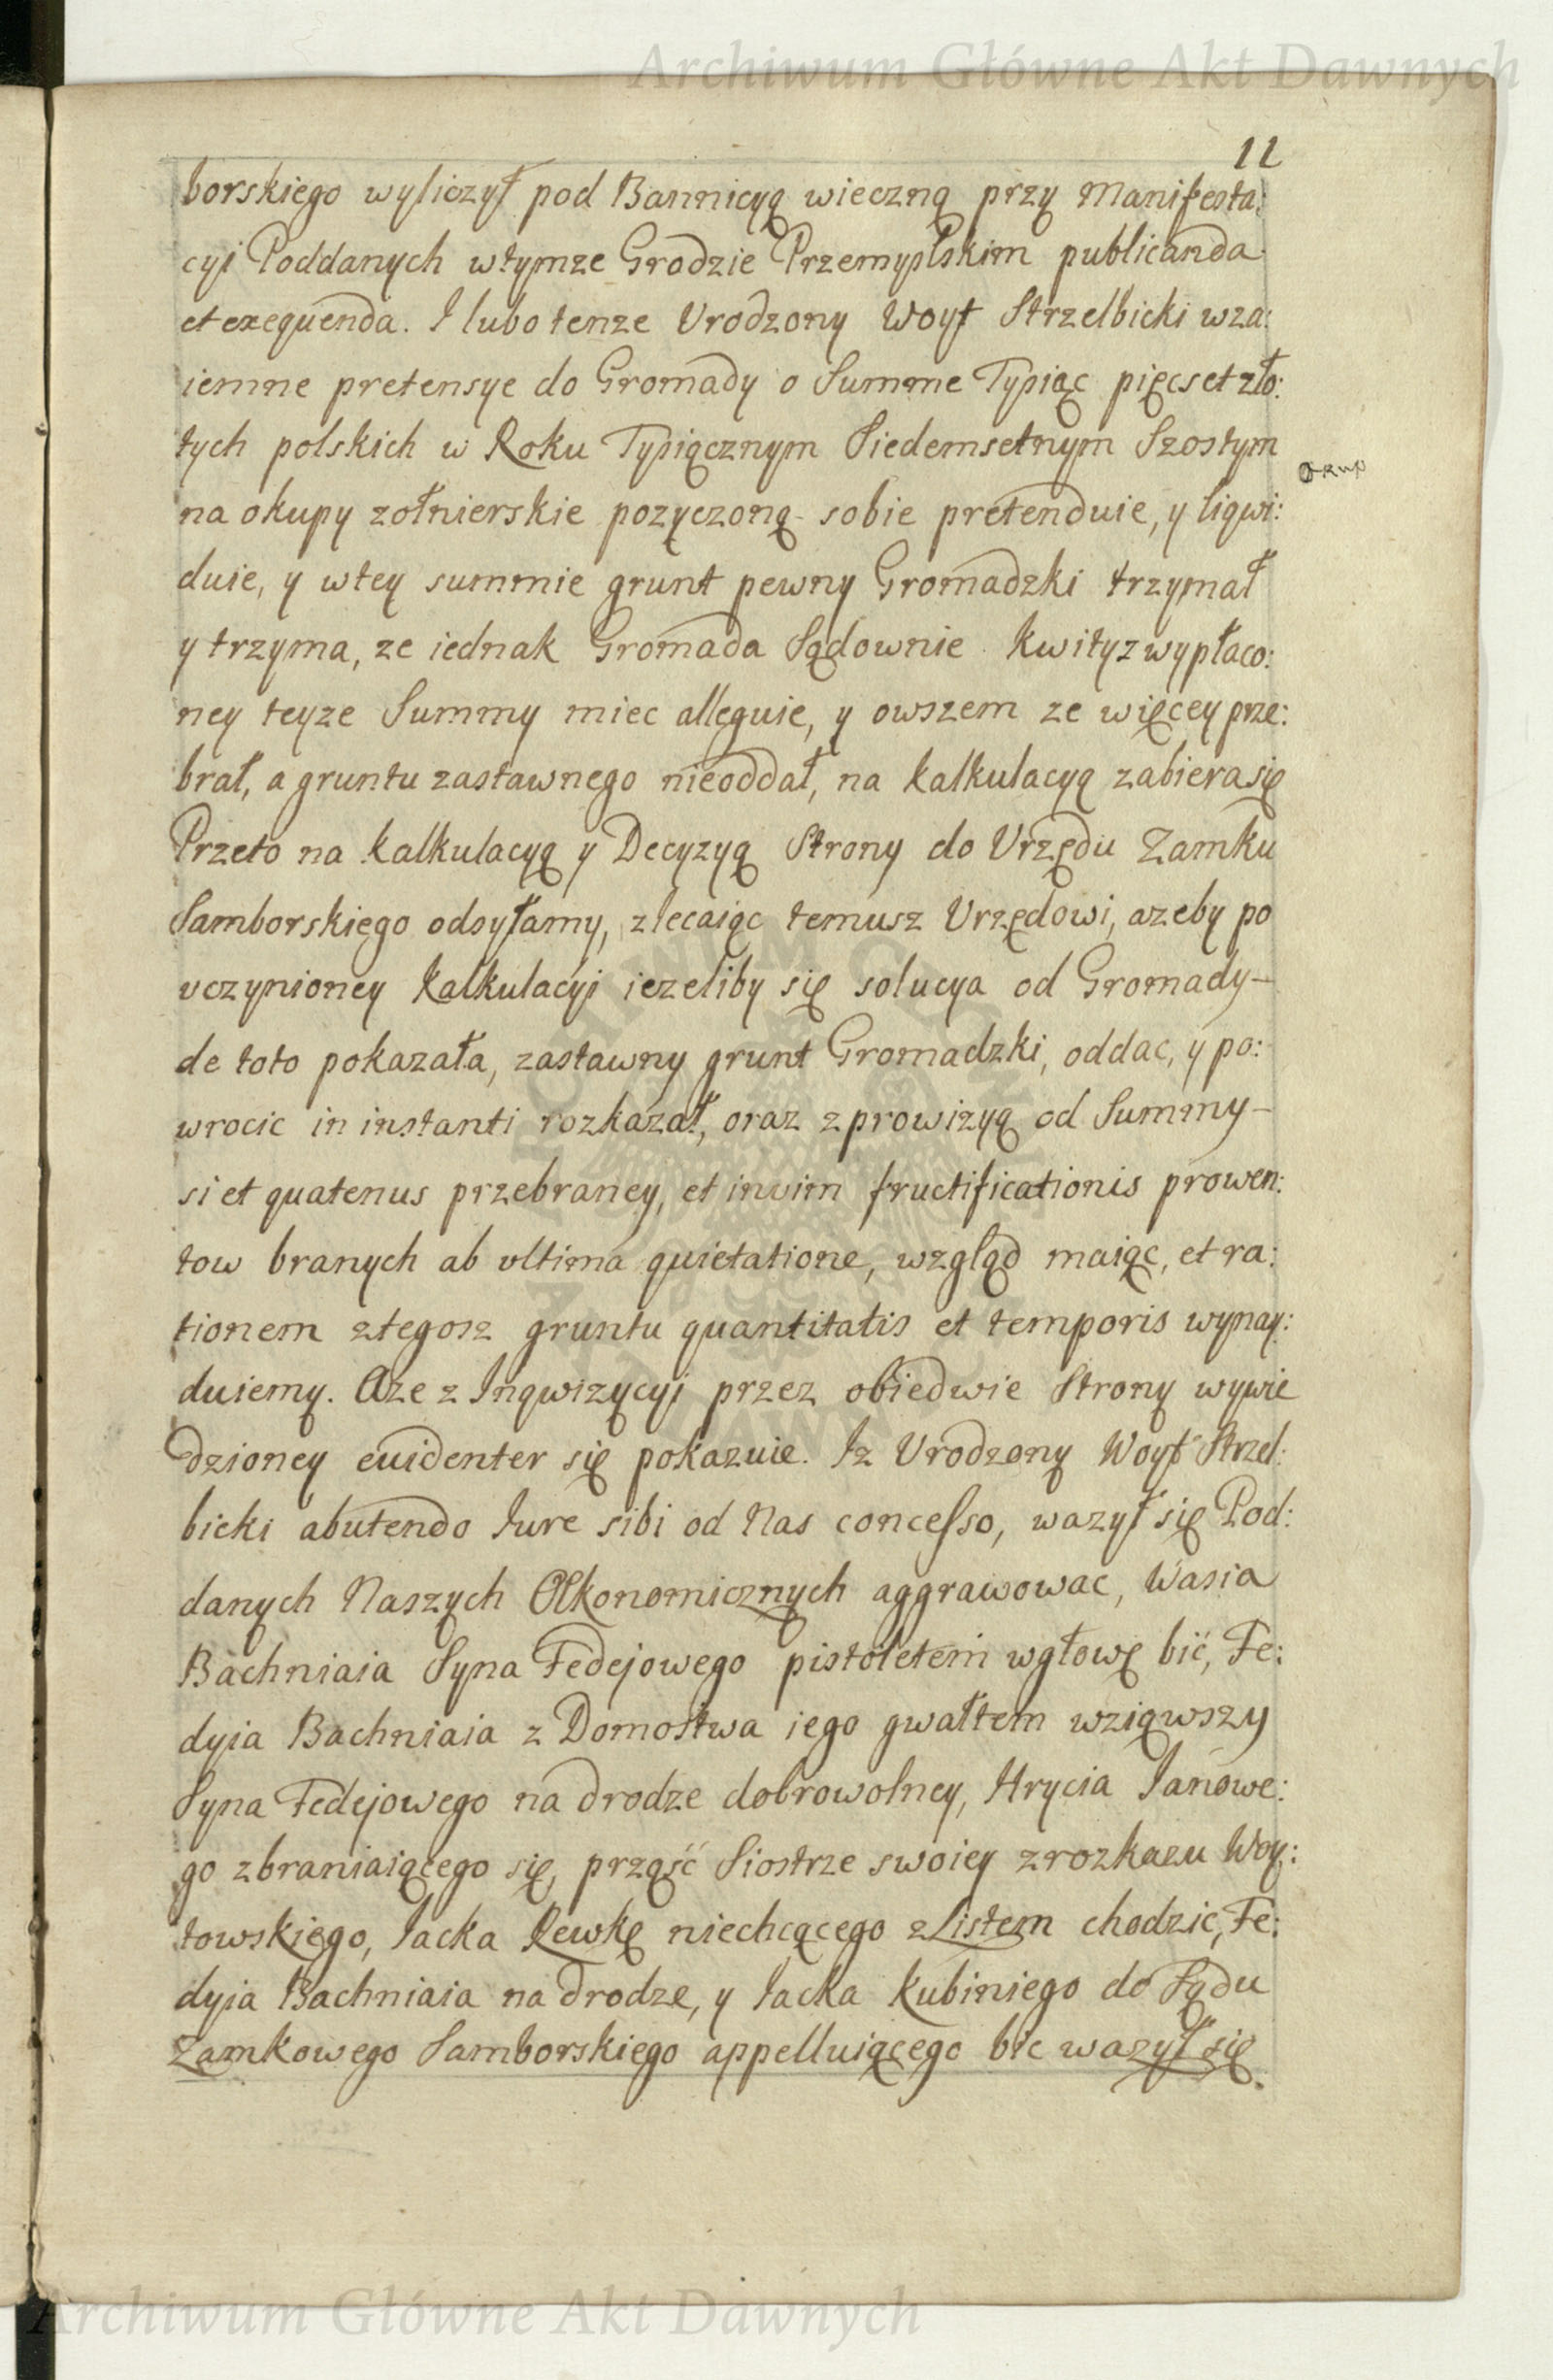 Archiwum Główne Akt Dawnych
11
borskiego wyliczył pod Bannicyą wieczną przy Manifesta:
cyi Poddanych wtymze Grodzie Przemyslskim publicanda
et exequenda. I lubo tenze Vrodzony Woyt Strzelbicki wza:
iemne pretensye do Gromady o Summe Tysiąc pięcset zło:
tych polskich w Roku Tysiącznym Siedemsetnym Szostym
okup
na okupy zołnierskie pozyczoną sobie pretenduie, y liqwi:
duie, y wtey summie grunt pewny Gromadzki trzymał
y trzyma, ze iednak Gromada Sądownie kwity z wypłaco:
ney teyze Summy miec alleguie, y owszem ze więcey prze:
brał, a gruntu zastawnego nieoddał, na kalkulacyą zabiera się
Przeto na kalkulacyą y Decyzyą Strony do Vrzędu Zamku
Samborskiego odsyłamy, zlecaiąc temusz Vrzędowi, azeby po
vczynioney kalkulacyi iezeliby się solucya od Gromady–
de toto pokazała, zastawny grunt Gromadzki, oddac, y po:
wrocic in instanti rozkazał, oraz z prowizyą od Summy–
si et quatenus przebraney, et in vim fructificationis prowen:
tow branych ab vltima quietatione, wzgląd maiąc, et ra:
tionem ztegosz gruntu quantitatis et temporis wynay:
duiemy. Aze z Inqwizycyi przez obiedwie Strony wywie
dzioney euidenter się pokazuie. Iz Vrodzony Woyt Strzel:
bicki abutendo Iure sibi od Nas concesso, wazył się Pod:
danych Naszych Olkonomicznych aggrawowac, Wasia
Bachniaia Syna Fedejowego pistoletem wgłowę bić, Fe:
dyia Bachniaia z Domostwa iego gwałtem wziąwszy
Syna Fedejowego na drodze dobrowolney, Hrycia Ianowe:
go zbraniaiącego się, prząść Siostrze swoiey z rozkazu Woy:
towskiego, Iacka Rewkę niechcącego z Listem chodzic, Fe:
dyia Bachniaia na drodze, y Iacka Kubiniego do Sądu
Zamkowego Samborskiego appelluiącego bic wazył się.
Archiwum Główne Akt Dawnych